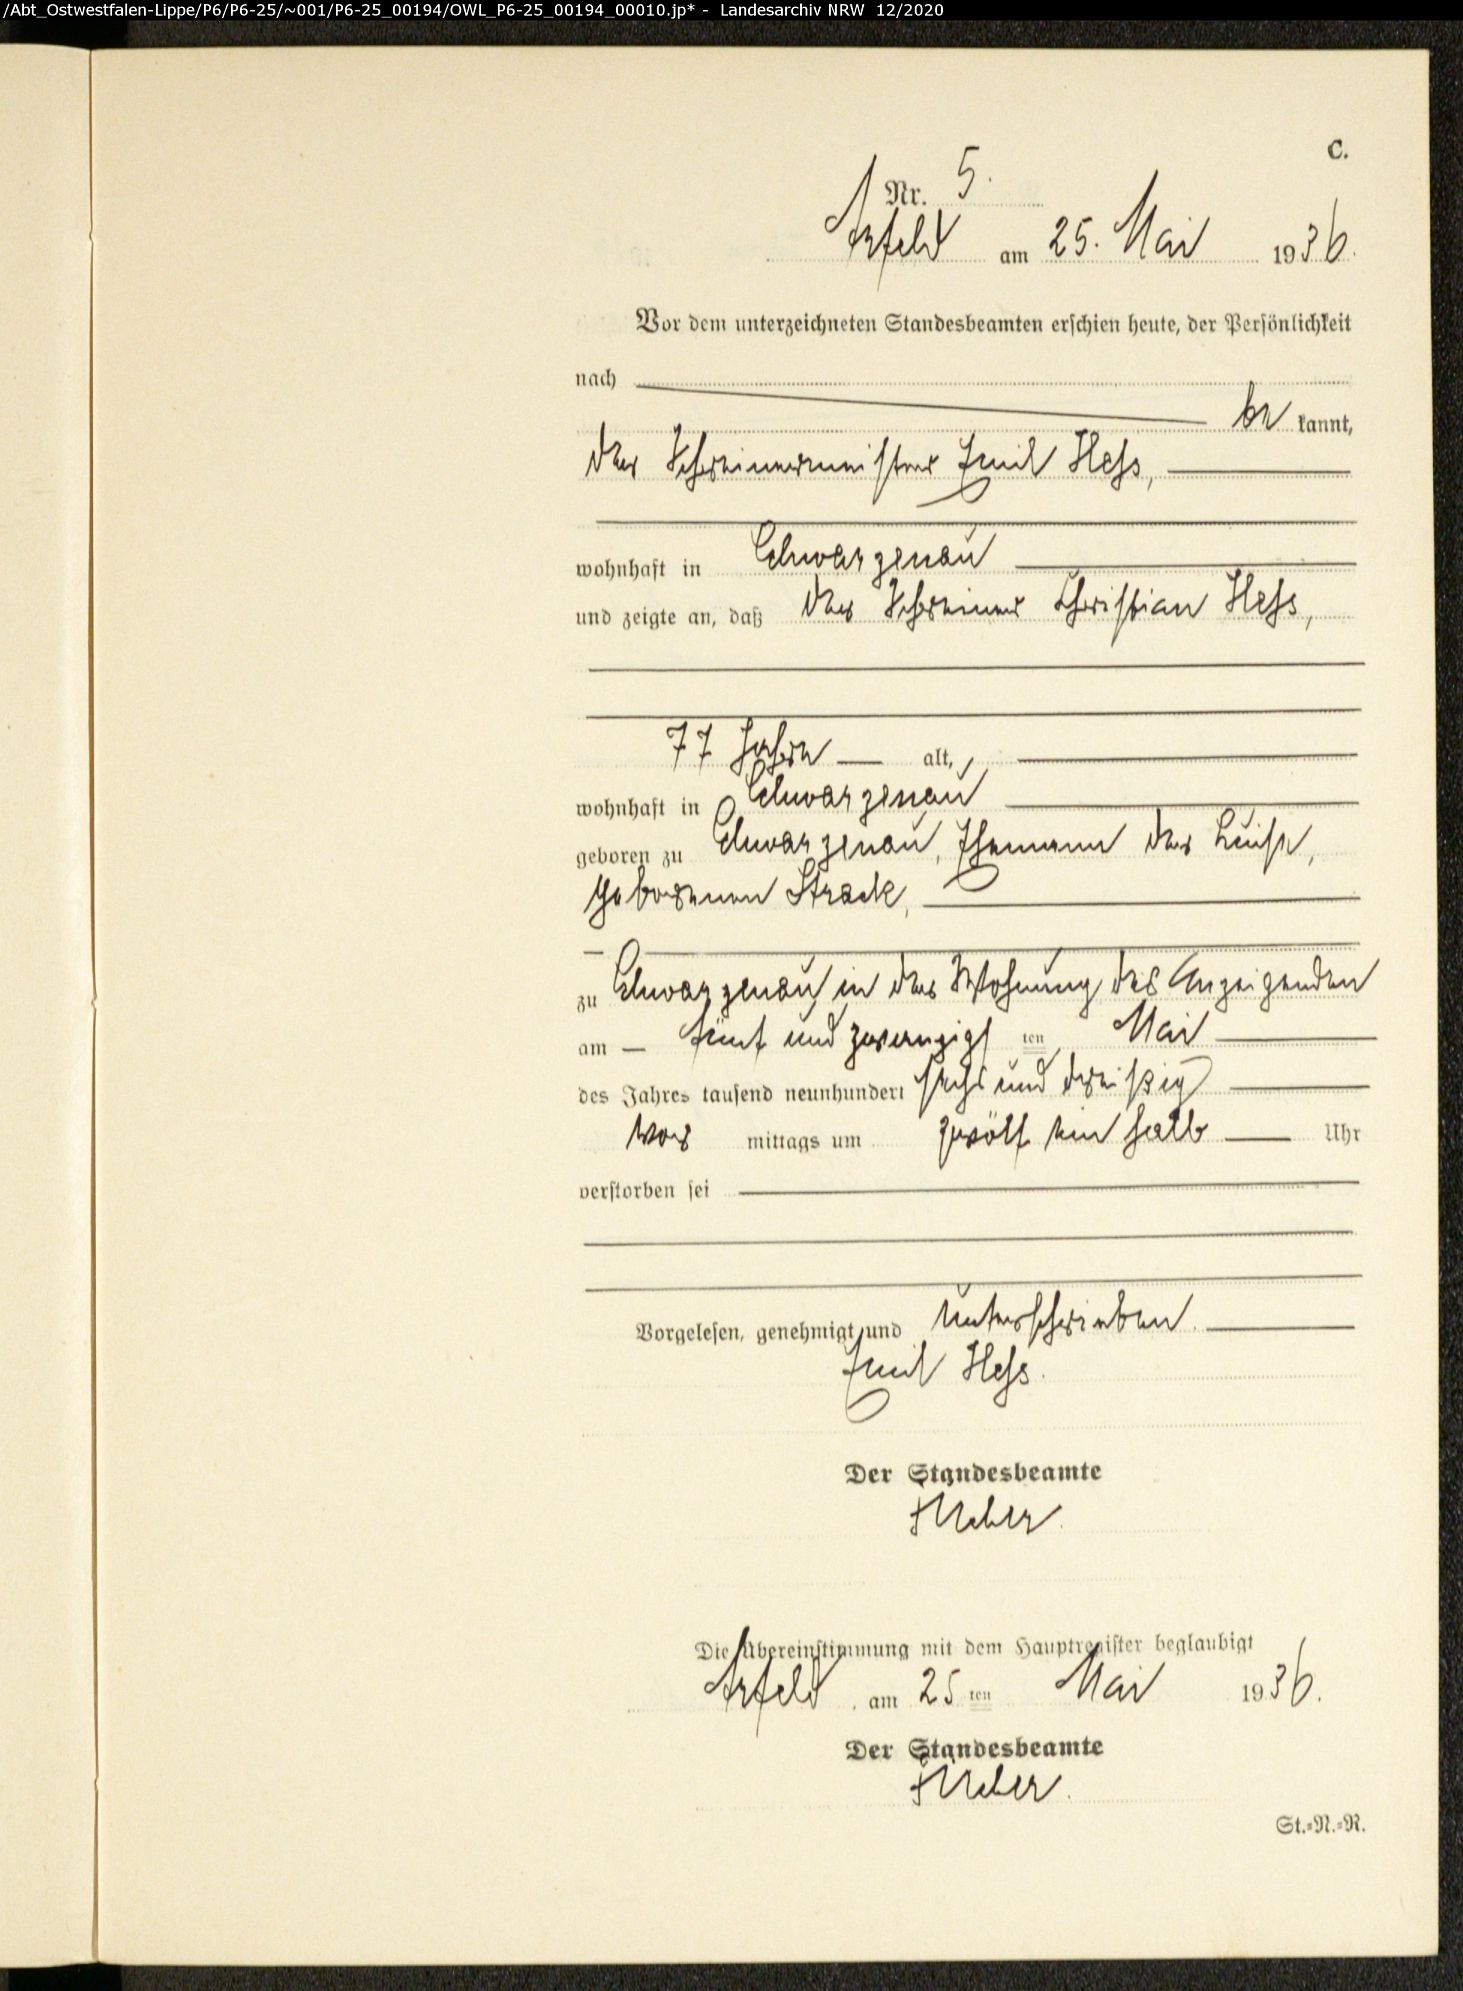 /Abt_Ostwestfalen-Lippe/P6/P6-25/~001/P6-25_00194/OWL_P6-25_00194_00010.jp* - Landesarchiv NRW 12/2020
C.
Nr. 5.
Arfeld am 25. Mai 1936.
Vor dem unterzeichneten Standesbeamten erschien heute, der Persönlichkeit
nach
be kannt,
der Schreinermeister Emil Hess,
wohnhaft in Schwarzenau
und zeigte an, daß der Schreiner Christian Hess,
77 Jahre alt,
wohnhaft in Schwarzenau
geboren zu Schwarzenau, Ehemann der Luise,
geborenen Strack,
zu Schwarzenau in der Wohnung des Anzeigenden
am fünf und zwanzigsten Mai
des Jahres tausend neunhundert sechs und dreißig
vor mittags um zwölf ein halb Uhr
verstorben sei
Vorgelesen, genehmigt und unterschrieben.
Emil Hess.
Der Standesbeamte
Die Übereinstimmung mit dem Hauptregister beglaubigt
Arfeld, am 25 ten Mai 1936.
Der Standesbeamte
St.=N.=R.